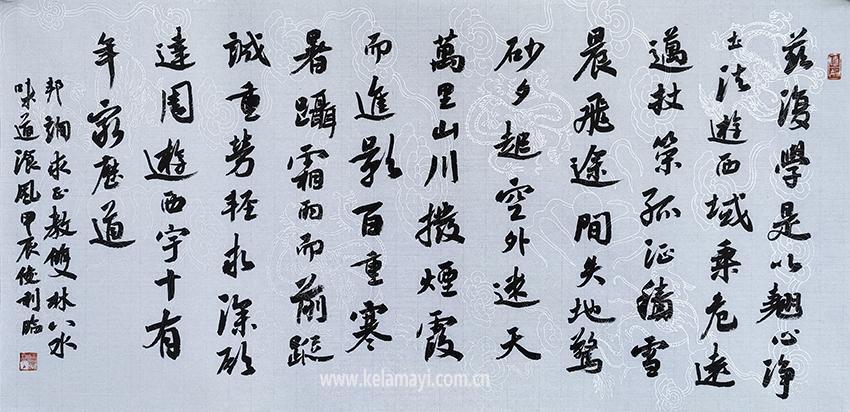 茲後學是以翹心淨
土法遊西域乘危遠
邁杖策孤征積雪
晨飛途間失地驚
砂夕起空外迷天
萬里山川撥煙霞
而進影百重寒
暑躡霜雨而前蹤
誠重勞輕求深願
達周遊西宇十有
年窮歷道
邦詢求正教雙林八水
味道湌風甲辰俊利臨
www.kelamayi.com.cn